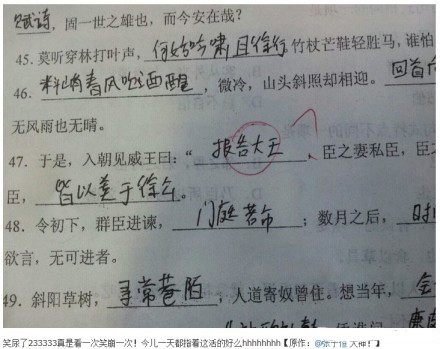 赋诗，固一世之雄也，而今安在哉？
45. 莫听穿林打叶声，何妨吟啸且徐行 竹杖芒鞋轻胜马，谁怕
46. 料峭春风吹酒醒，微冷，山头斜照却相迎。回首向
无风雨也无晴。
47. 于是，入朝见威王曰：“报告大王、臣之妻私臣，臣
臣，皆以美于徐公。
48. 令初下，群臣进谏，门庭若市；数月之后，时
欲言，无可进者。
49. 斜阳草树，寻常巷陌，人道寄奴曾住。想当年，金
笑尿了233333真是看一次笑崩一次！今儿一天都指着这活的好么hhhhhhhh【原作：@张宁恒 大神！】